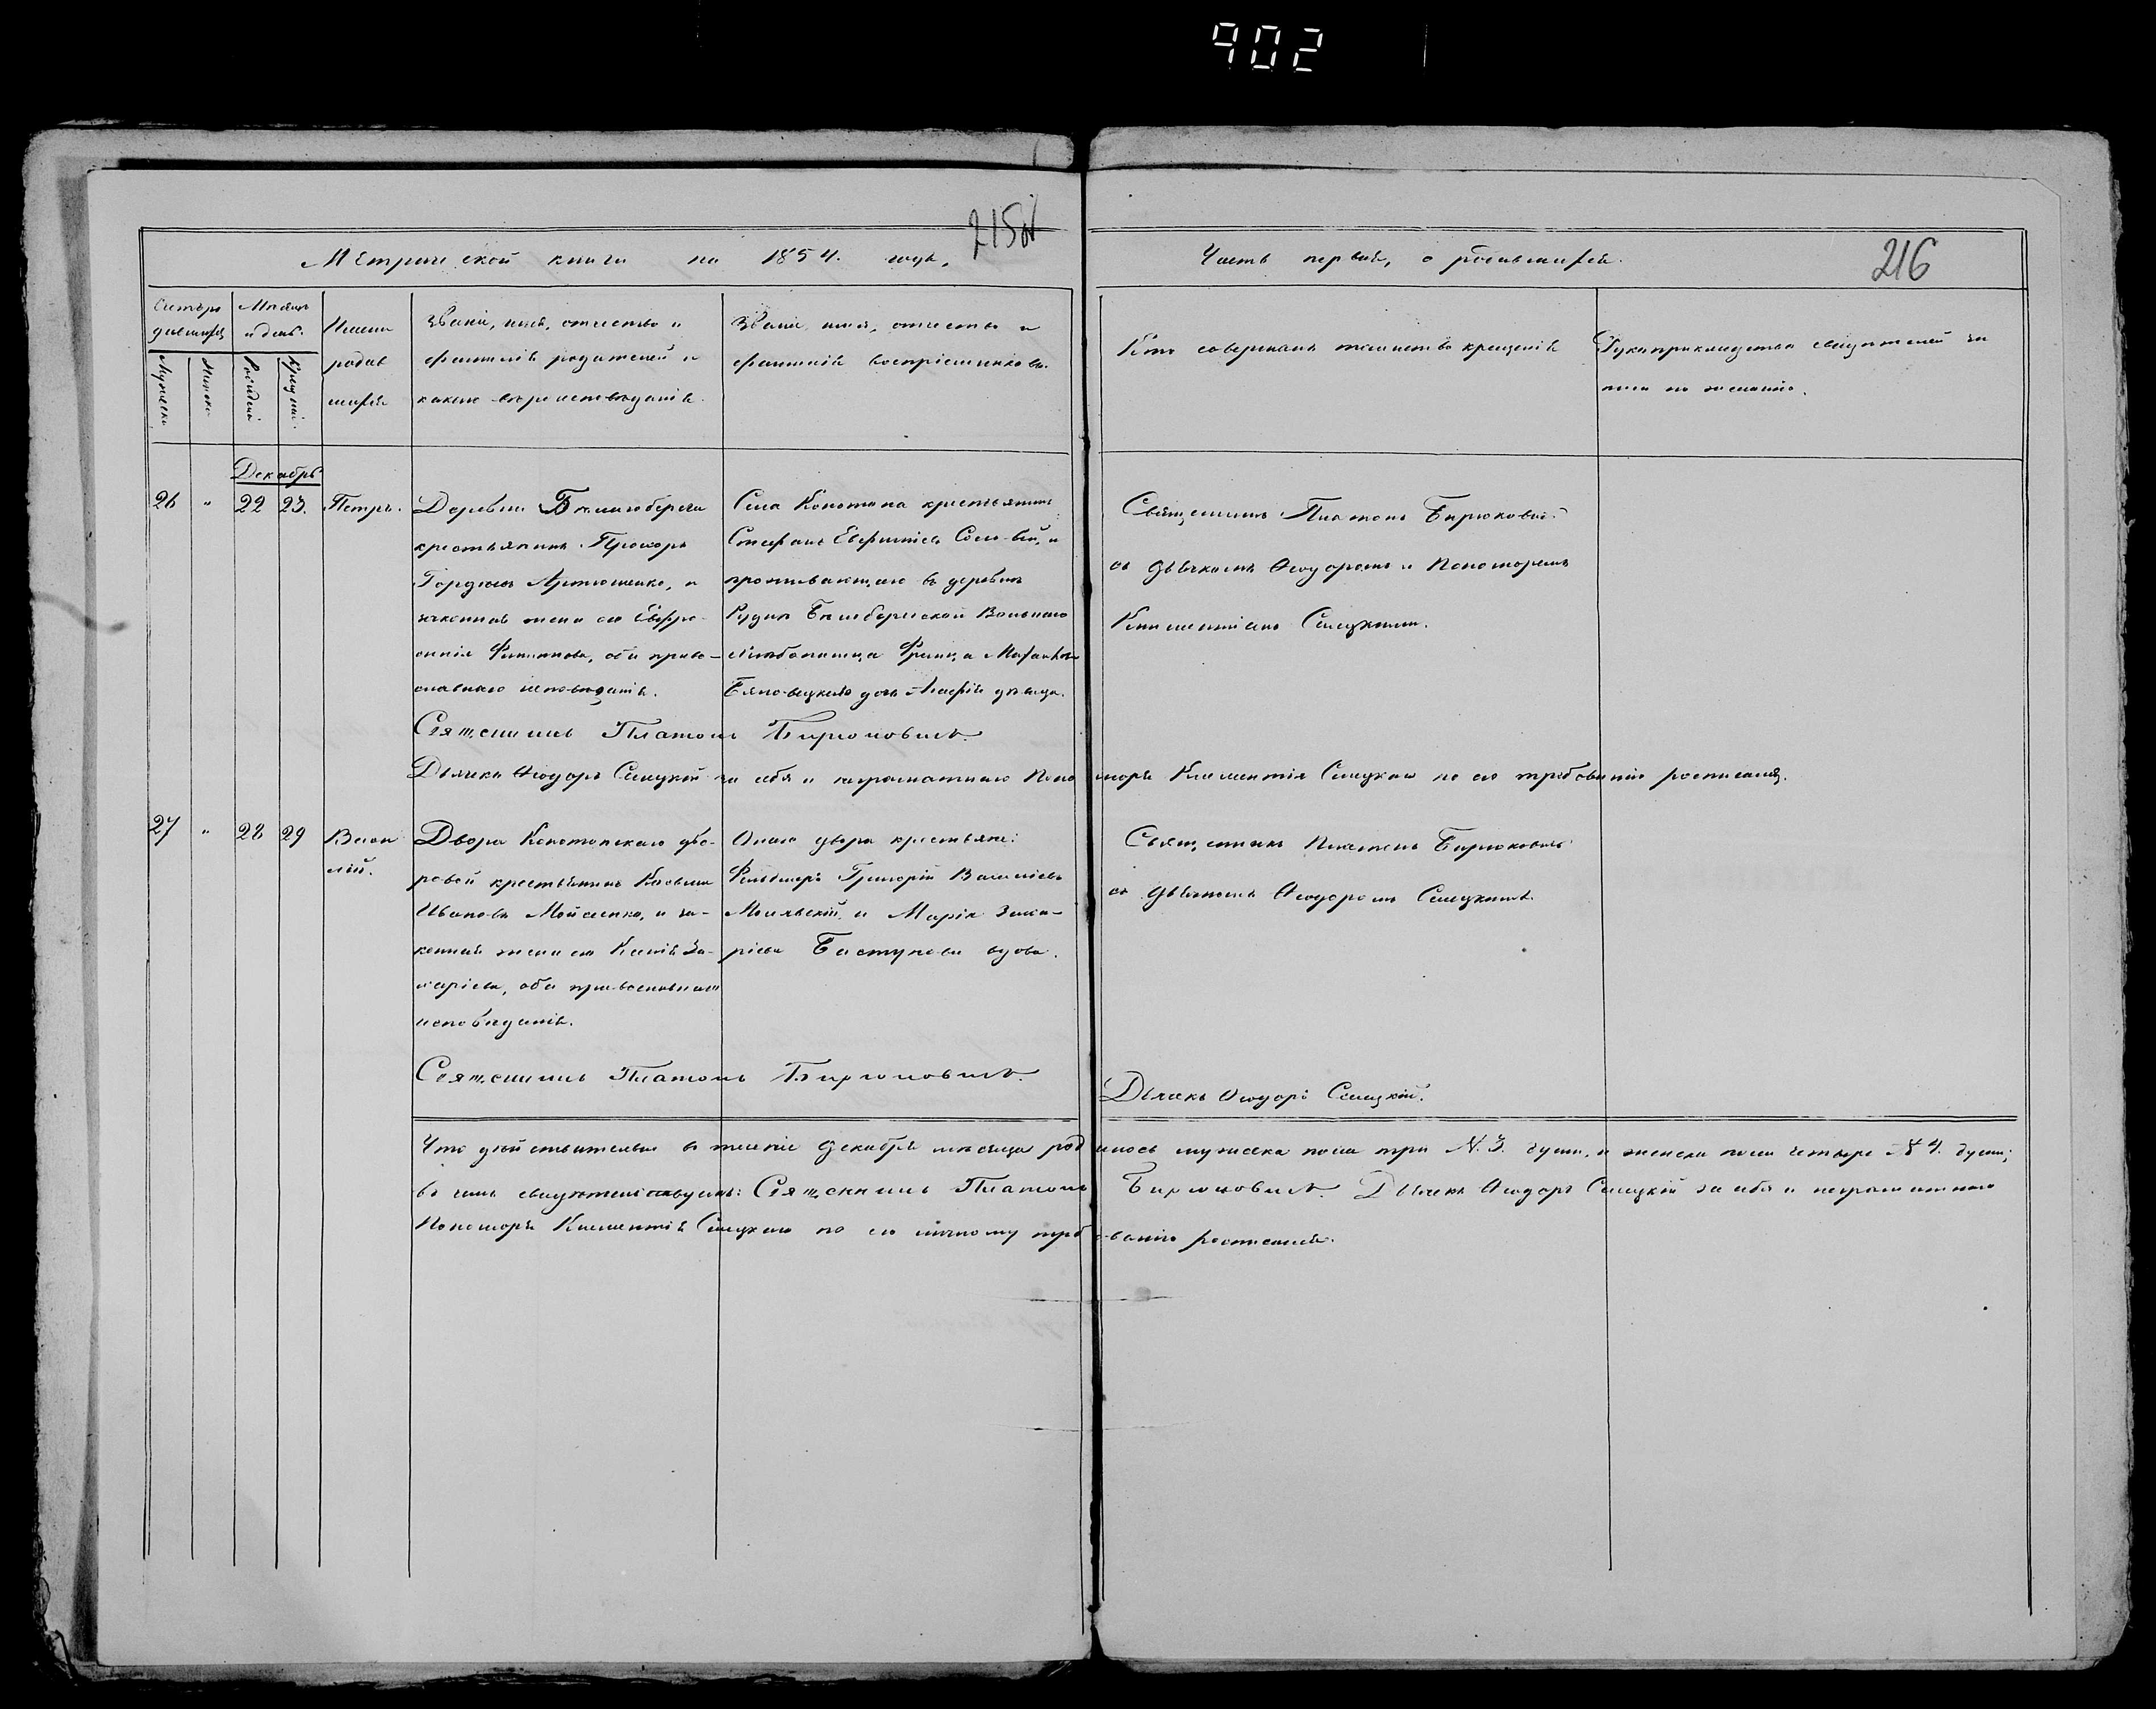 902
215об
Метрической книги на 1854. годъ,
Часть первая, о родившихся.
216
Счетъ родившихся
Мѣсяцъ и день.
Мужеска
Женска
Рожденія
Крещенія.
Имена
родив
шихся
Званіе, имя, отчество и
фамилія родителей и
какого вѣроисповѣданія.
Званіе, имя, отчество и
фамилія воспріемниковъ.
Кто совершалъ таинство крещенія
Рукоприкладство свидѣтелей за
писи по желанію.
Декабрь
26 " 22 23. Петръ.
Деревни Великоберега
крестьянинъ Прохоръ
Гордѣевъ Артюшенко, и
законная жена его Евфро-
синія Филиппова, оба право-
славнаго исповѣданія.
Села Конотопа крестьянинъ
Стефанъ Евфиміевъ Соло-вей, и
проживающаго въ деревнѣ
Рудни Вольнаго
Франца
дочь дѣвица.
Священникъ Платонъ Бирюковичъ
съ дьячкомъ Ѳеодоромъ и Пономаремъ
Климентіемъ Слуцкимъ.
Священникъ Платонъ Бирюковичъ.
Дьячекъ Ѳеодоръ Слуцкій за себя и неграмотнаго Поно маря Климентія Слуцкаго по его требованію росписался.
27 " 28 29 Васи
лій.
Двора Конотопскаго дво-
ровой крестьянинъ Косьма
Ивановъ Мойсеенко, и за-
конная жена его Ксенія За-
харіева, оба православнаго
исповѣданія.
Онаго двора крестьяне:
Фельдшеръ Григорій Василіевъ
и Марія Заха-
ріева Бастунова вдова.
Священникъ Платонъ Бирюковичъ
съ дьячкомъ Ѳеодоромъ Слуцкимъ.
Священникъ Платонъ Бирюковичъ.
Дьячекъ Ѳеодоръ Слуцкій.
Что дѣйствительно въ теченіе Декабря мѣсяца род илось мужеска пола три N. 3. души, и женска пола четыре N 4. души;
въ чемъ свидѣтельствуемъ: Священникъ Платонъ Бирюковичъ. Дьячекъ Ѳеодоръ Слуцкій за себя и неграмотнаго
Пономаря Климентія Слуцкаго по его личному треб ованію росписался.